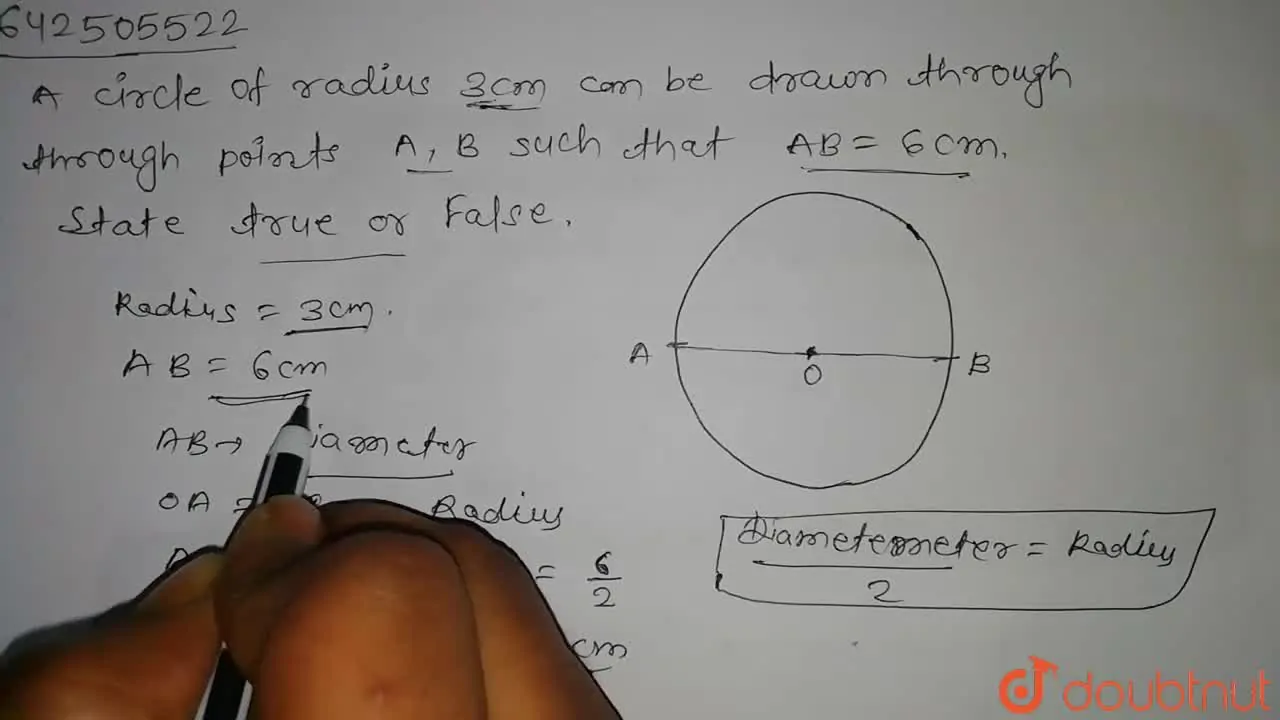 642505522
A circle of radius 3cm can be drawn through
through points A, B such that AB = 6cm.
State true or False.
Radius = 3cm.
AB = 6cm
AB → Diameter
OA = Radius
= 6/2
cm
A
O
B
Diametermeter = Radius
2
doubtnut